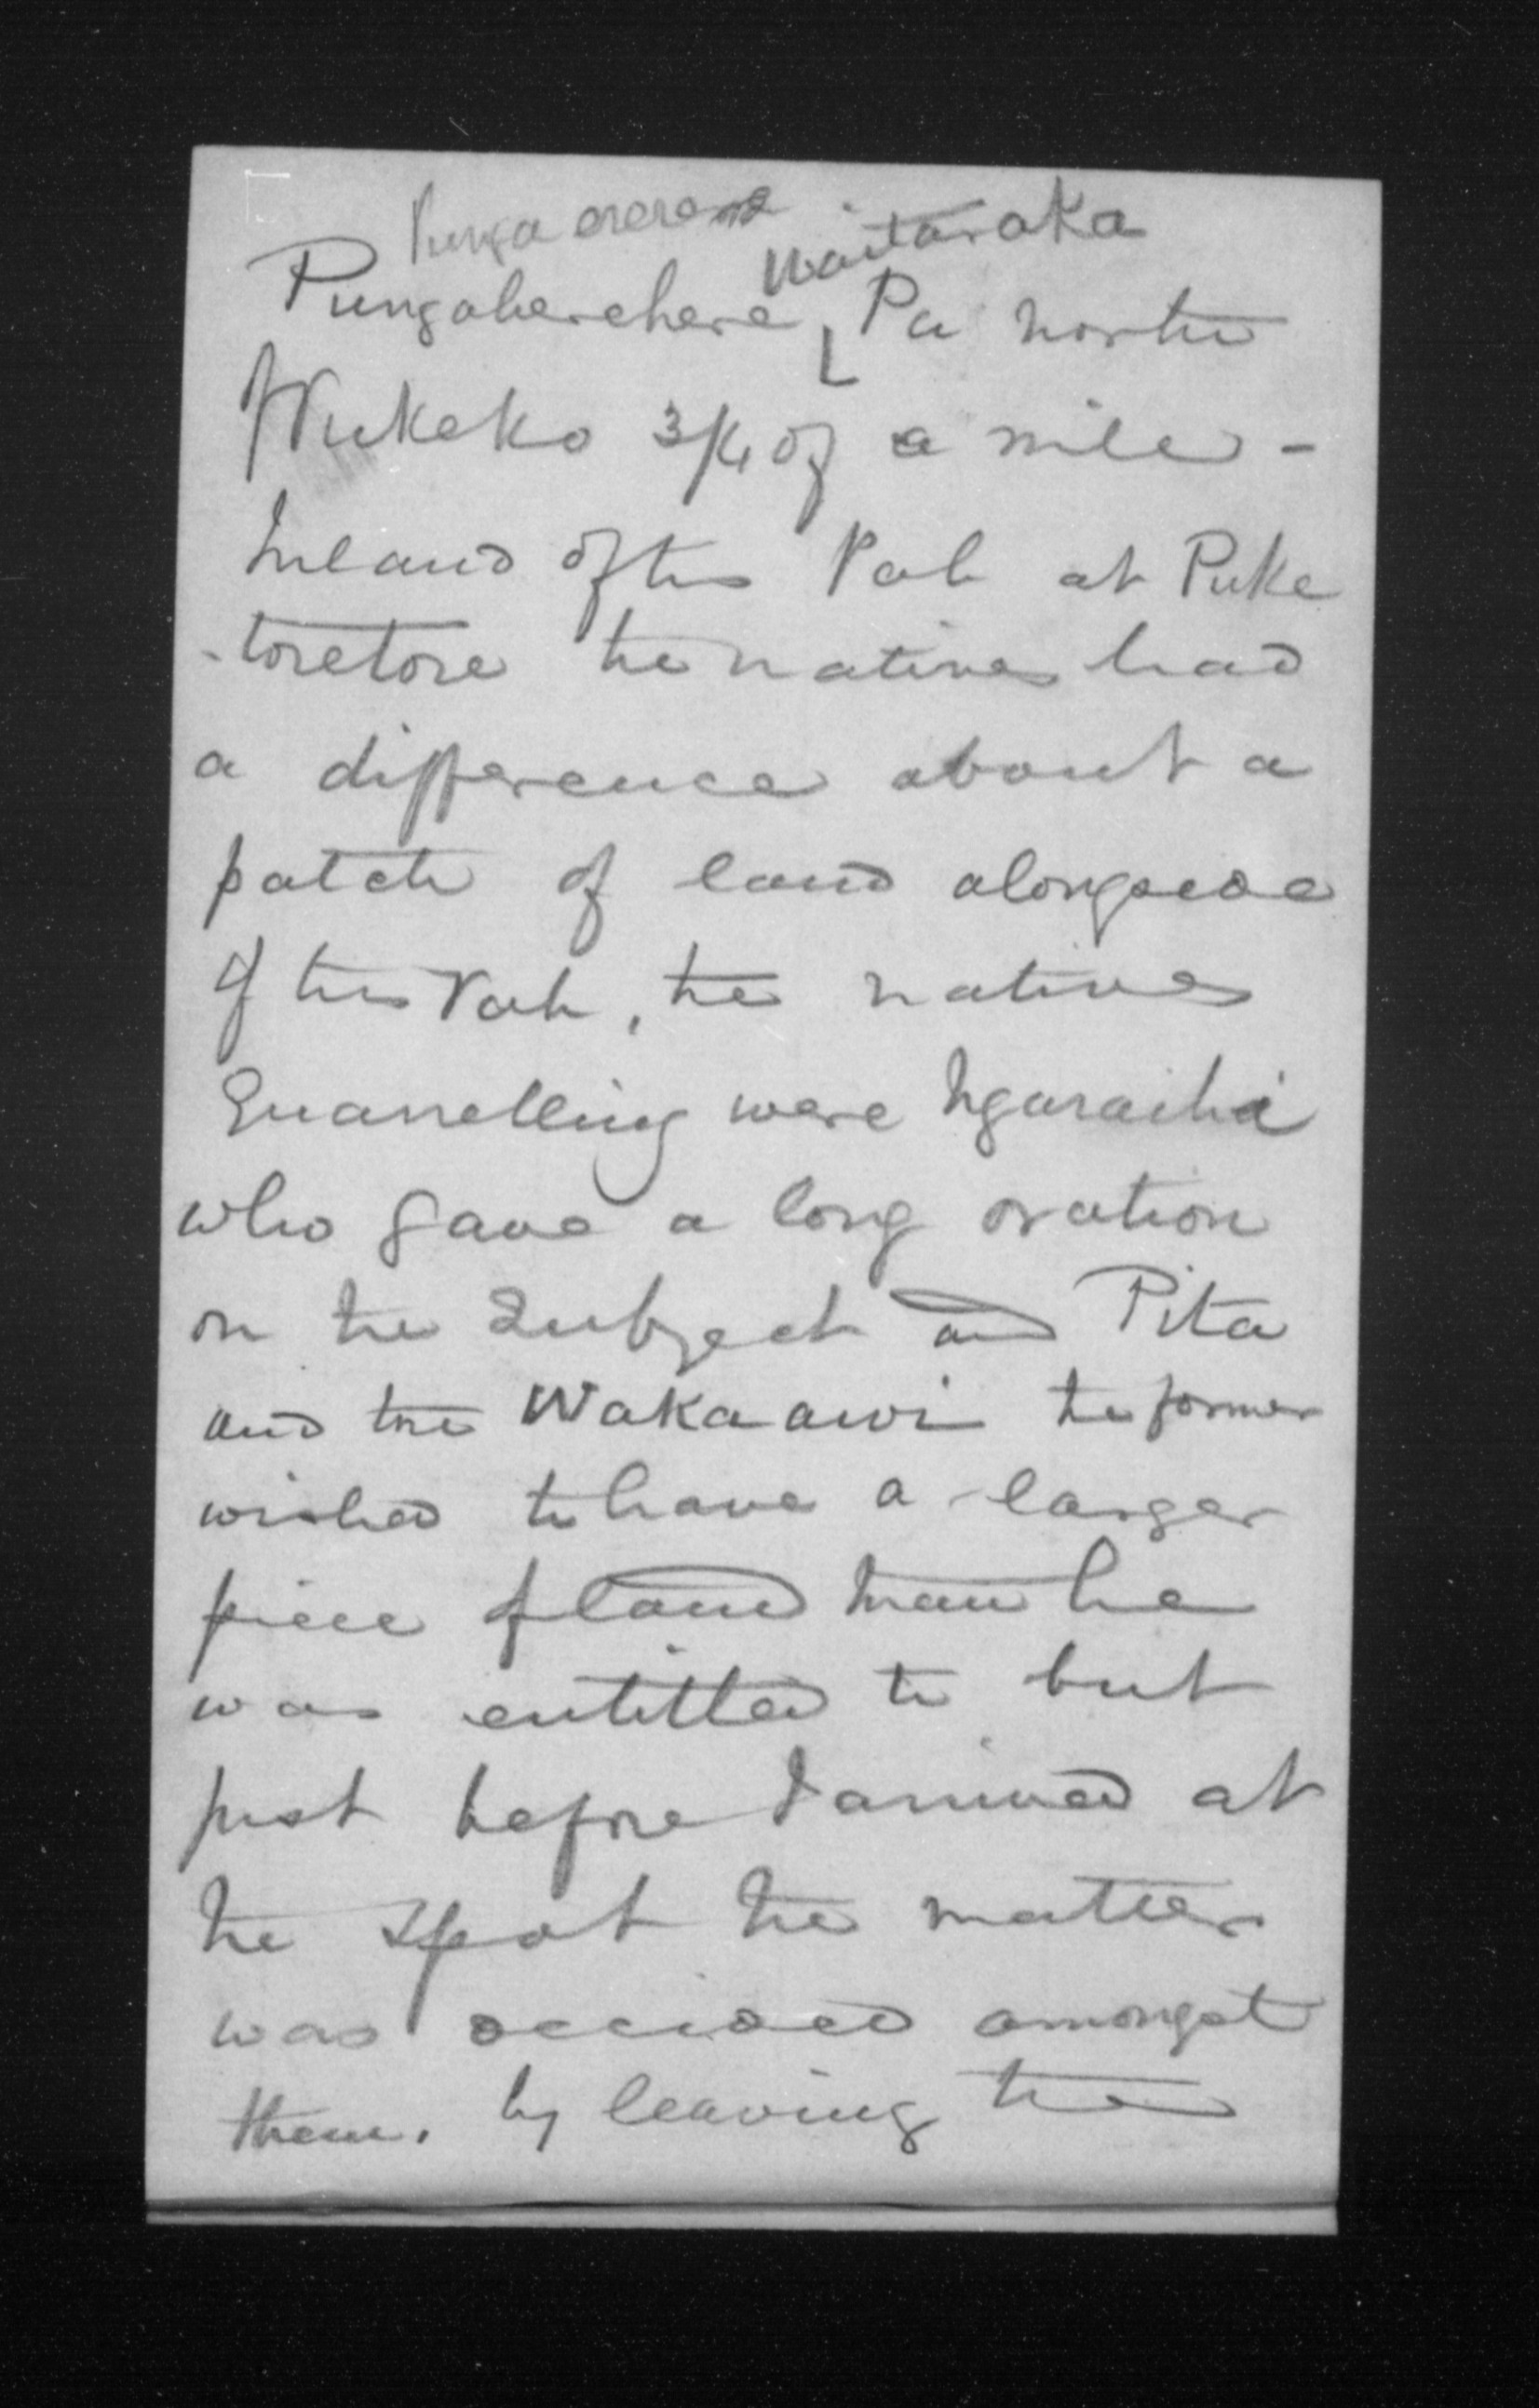 Punga erere
Waitaraka
Pungaherehere Pa north
Pukeko 3/4 of a mile -
Inland of the Pah at Puke
-toretore the natives had
a difference about a
patch of land alongside
of the Pah, the natives
Quarrelling were Ngaraihi
who gave a long oration
on the subject and Pita
and the Wakaawi the former
wished to have a larger
piece of land than he
was entitled to but
just before I arrived at
the spot the matter
was decided amongst
them. by leaving the